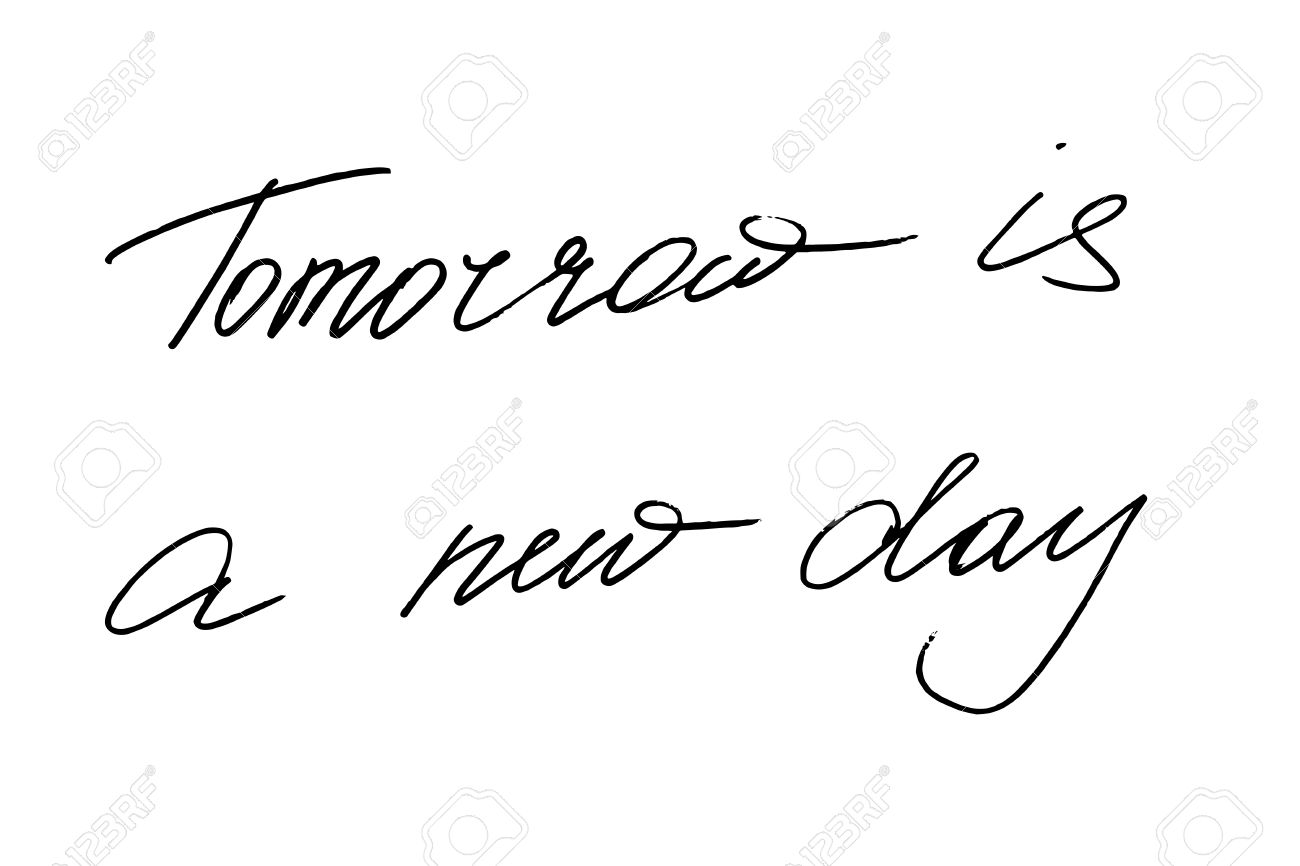 Tomorrow is
a new day
123RF
123RF
123RF
123RF
123RF
123RF